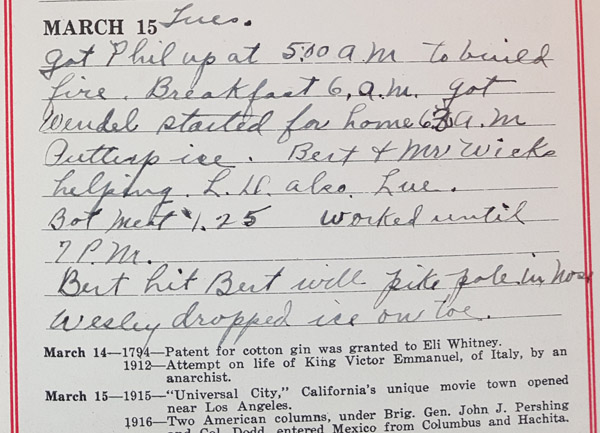 MARCH 15 Tues.
got Phil up at 5:00 a.m to build
fire. Breakfast 6, a.m. got
Wendel started for home 6 a.m
Putting up ice. Bert & Mr Wicks
helping. L. D. also. Lue.
Bot meat 1.25 worked until
7 P.M.
Bert hit Bert will pike pole in nose
Wesley dropped ice on toe.
March 14—1794—Patent for cotton gin was granted to Eli Whitney.
1912—Attempt on life of King Victor Emmanuel, of Italy, by an
anarchist.
March 15—1915—"Universal City," California's unique movie town opened
near Los Angeles.
1916—Two American columns, under Brig. Gen. John J. Pershing
and Col. Dodd, entered Mexico from Columbus and Hachita.